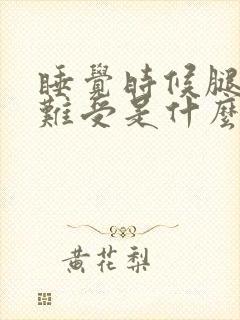 睡覺時候腿
難受是什麼
黃花梨